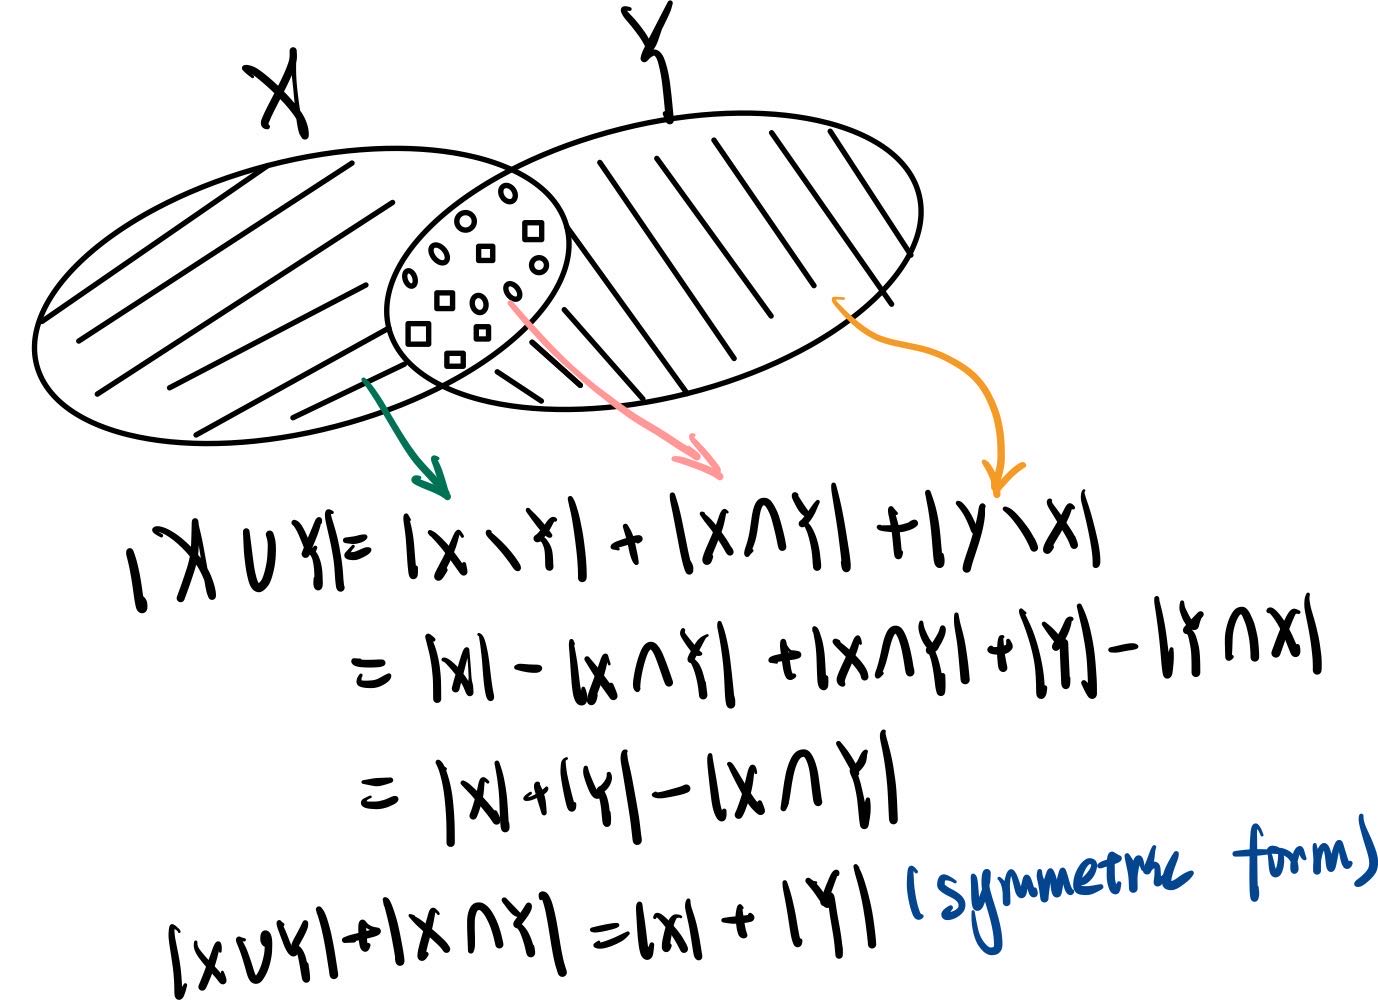 X
Y
|X ∪ Y| = |X \ Y| + |X ∩ Y| + |Y \ X|
= |X| - |X ∩ Y| + |X ∩ Y| + |Y| - |Y ∩ X|
= |X| + |Y| - |X ∩ Y|
|X ∪ Y| + |X ∩ Y| = |X| + |Y| (symmetric form)